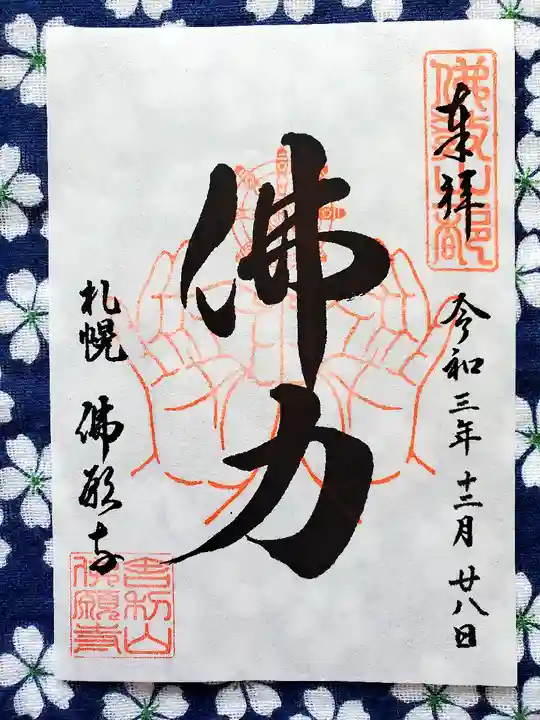 奉拝
令和三年十二月廿八日
佛力
札幌 佛願寺
佛願寺